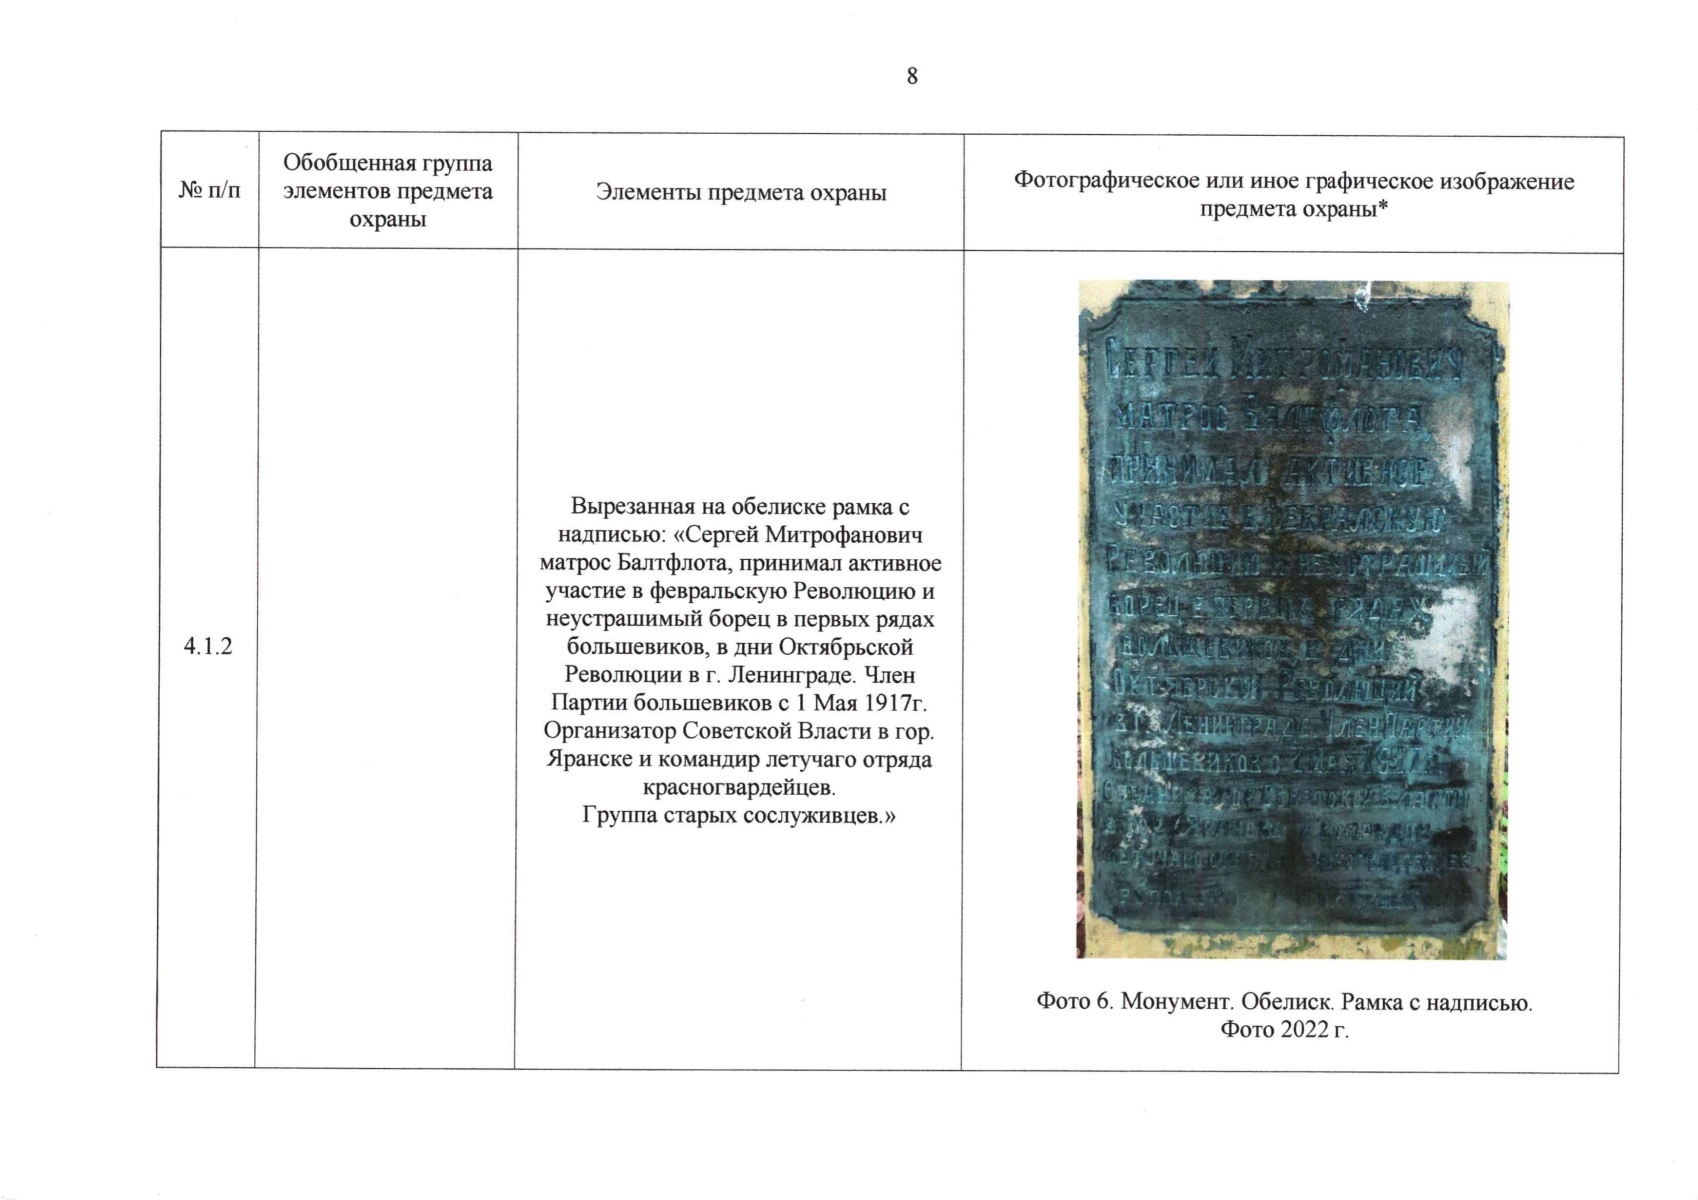 8
№ п/п
Обобщенная группа
элементов предмета
охраны
Элементы предмета охраны
Фотографическое или иное графическое изображение
предмета охраны*
4.1.2
Вырезанная на обелиске рамка с
надписью: «Сергей Митрофанович
матрос Балтфлота, принимал активное
участие в февральскую Революцию и
неустрашимый борец в первых рядах
большевиков, в дни Октябрьской
Революции в г. Ленинграде. Член
Партии большевиков с 1 Мая 1917г.
Организатор Советской Власти в гор.
Яранске и командир летучаго отряда
красногвардейцев.
Группа старых сослуживцев.»
Сергей Митрофанович
матрос Балтфлота,
принимал активное
участие в февралскую
Революцию и неустрашимый
борец в первых рядах
большевиков, в дни
Октябрской Революций
в г. Ленинграде Член Партии
большевиков с 1 мая 1917г.
Фото 6. Монумент. Обелиск. Рамка с надписью.
Фото 2022 г.